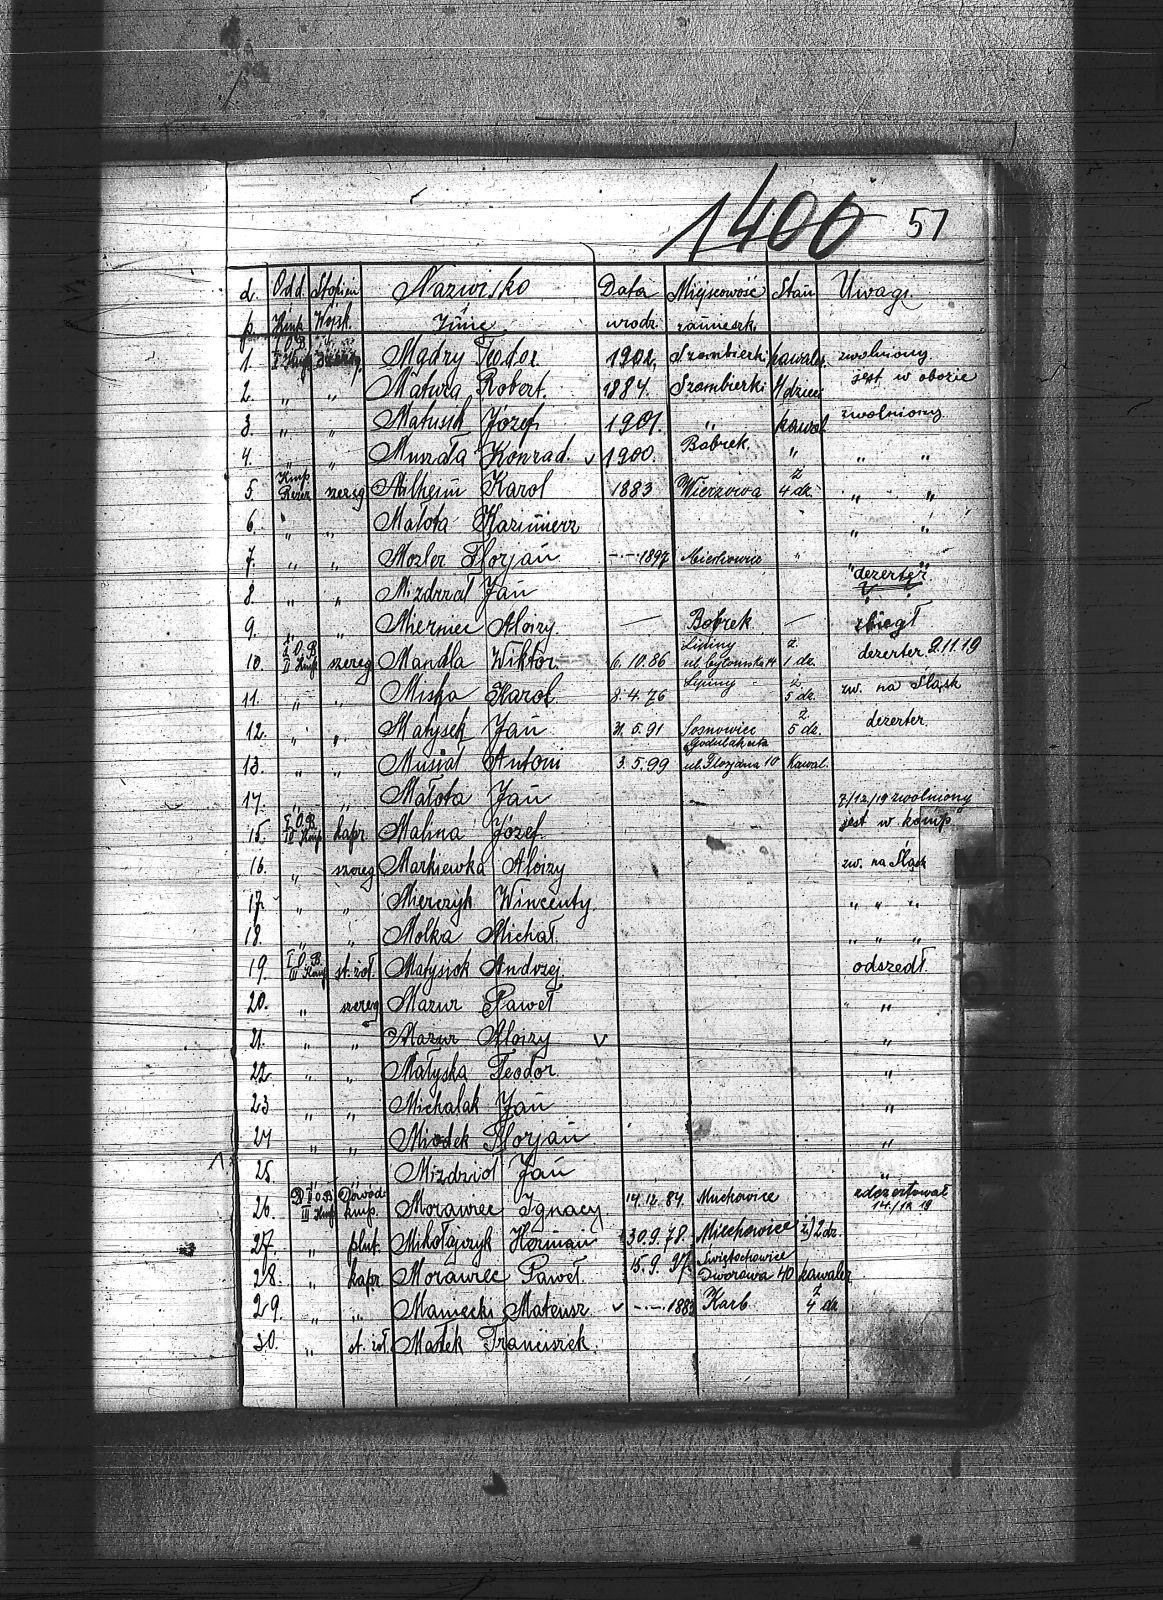 1400 51
L. Odd. Stopień Nazwisko Data Miejscowość Stan Uwagi.
p. Kmp. Wojsk. Imię urodz. zamieszk.
1. I O.B. II Kmp Mądry Teodor 1902. Szombierki kawaler zwolniony
2. " " Matura Robert. 1884. Szombierki 4 dzieci jest w obozie
3. " " Matusik Józef 1901. " kawal. zwolniony
4. " " Muszała Konrad. v 1900. Bobrek " " "
5. Kmp Rezer szereg Malheim Karol 1883 Wieszowa ż 4 dz. " "
6. " " Małota Kazimierz " "
7. " " Mozler Florjan -"-"- 1897 "
8. " " Mizdrzal Jan "dezerter"
9. " " Mierniec Aloizy. — Bobrek — zbiegł
10. I O.B. II Kmp szereg Mandla Wiktor. 6.10.86 Lipiny ul. Bytomska 14 ż. 1 dz. dezerter 9.11 19
11. " " Miska Karol 8.4.76 Lipiny - ż. 5 dz. zw. na Śląsk
12. " " Matysek Jan 21.5.91 Sosnowiec ż 5 dz. dezerter.
13. " " Musiał Antoni 3.5.99 Godulahuta ul. Florjana 10 Kawal.
14. " " Małota Jan 7/12/19 zwolniony
15. I O.B. II Kmp kapr. Malina Józef jest w komp
16. " szereg Markiewka Aloizy zw. na Śląsk
17. " " Mierczyk Wincenty. " " "
18. " " Molka Michał. " " "
19. I O.B. III Kmp st. żoł. Matysiok Andrzej. odszedł.
20. " szereg Mazur Paweł "
21. " " Mazur Aloizy v "
22 " " Małyska Teodor. "
23 " " Michalak Jan "
24 " " Miodek Florjan "
25. " " Mizdziol Jan "
26. I O.B. III Kmp Dowód. kmp. Morawiec Ignacy. 14.12.84. Muchowice zdezertował 14./IX 19
27. " plut. Mikołajczyk Herman 30.9.78. Miechowice ż) 2 dz.
28. " kapr Morawiec Paweł. 15.9.97. Świętochowice Dworowa 40 kawaler
29. " " Maniecki Mateusz v -"-"- 1883 Karb ż 4 dz
30. " st. żoł. Małek Franciszek.